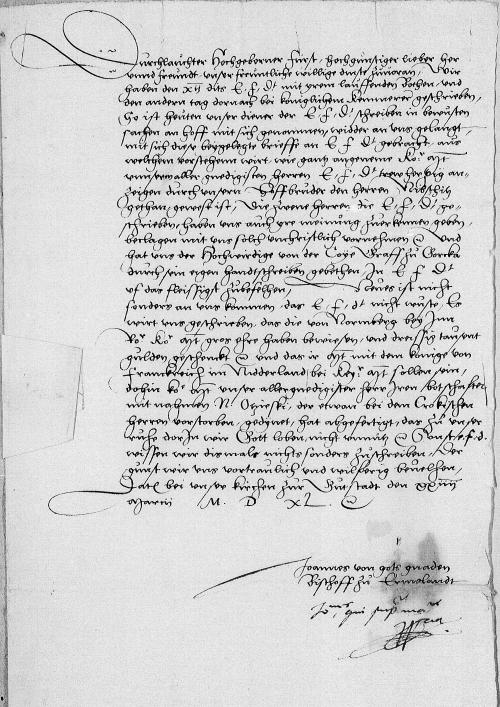 Durchlauchter Hochgeborner Furst, hochgunstiger lieber her
unnd freundt unser freuntliche willige dinste zuuoran, Wir
haben den xij dits E. F. Dt mit yrem lauffenden Bothen, und
den andern tag dornach bei koniglichem Kemmerer geschrieben,
So ist heiten unser diener der E. F. Dt schreiben in bewusten
sachen an hoff mit sich genommen, widder an uns gelangt,
mit sich diese beygelegte brieffe an E. F. Dt gebracht, aus
welchem vorstehenn wirt, wie gantz angeneme Ko. Mt
unnserm aller gnedigisten herren E. F. Dt
zeigen durch unsern den herren Nibschitz
gethan, gewest ist, Die zwene herren die E. F. Dt ge-
schrieben, haben uns auch yre meinung zuerkennen geben,
beclagen mit uns solch unchristlich vornehmen &c Und
hat uns der Hochwirdige von der Coye Graff zu Gorcka
durch sein eigen handtschreiben gebethen In E. F. Dt
uf das fleissigst zubefelhen, Neues ist nicht
sonders an uns komen, das E. F. Dt nicht wuste, Es
wirt uns geschrieben, das die von Normbergk bey Inn
Ro. Ko. Mt gros ehre haben bewiesen, und dreissig tausent
gulden, geschenckt &c und das ir Mt mit dem kunige von
Franckreich im Nidderland bei Key. Mt sollen sein,
dohin ko. Mt unser allergnedigister herr Iren botschaffter
mit nahmen N Opieski, der etwan bei den
herren vorstorben, gedynet, hat abgefertigt, das zu unser
ruhe dor In wir Gott loben, nicht &c Sunst E. F. D.
wissen wir dismale nichts sonders zuschreiben, Der
gunst wir uns vortraulich und bevelhen,
Dat bei unser kirchen zur Gutstadt den xxiiii
Marcii M. D xL. &c
Joannes von gots gnaden
Bischoff zu Ermelandt
qui supra manu